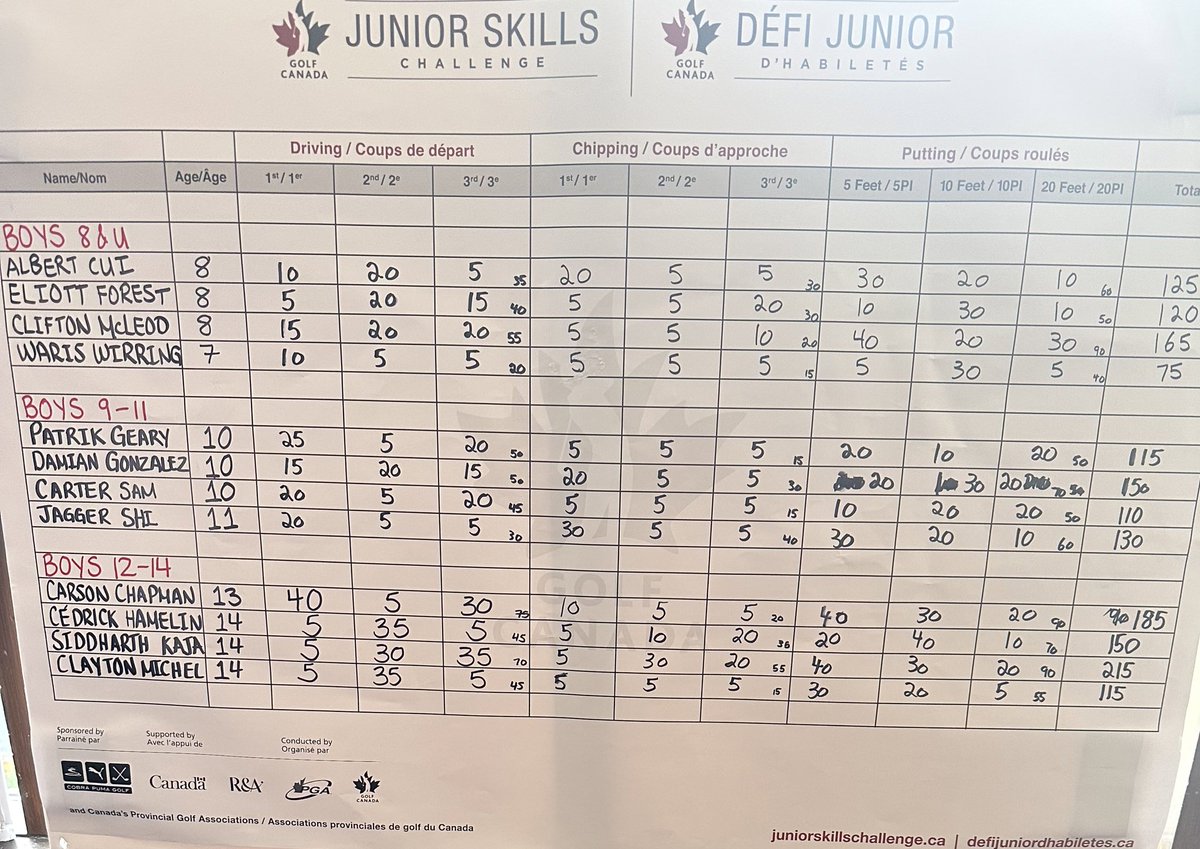 JUNIOR SKILLS
CHALLENGE
GOLF
CANADA
DÉFI JUNIOR
D'HABILETÉS
GOLF
CANADA
Driving / Coups de départ Chipping / Coups d'approche Putting / Coups roulés
Name/Nom Age/Âge 1st / 1er 2nd / 2e 3rd / 3e 1st / 1er 2nd / 2e 3rd / 3e 5 Feet / 5PI 10 Feet / 10PI 20 Feet / 20PI Tota
BOYS 8 & U
ALBERT CUI 8 10 20 5 35 20 5 5 30 30 20 10 60 125
ELIOTT FOREST 8 5 20 15 40 5 5 20 30 10 30 10 50 120
CLIFTON McLEOD 8 15 20 20 55 5 5 10 20 40 20 30 90 165
WARIS WIRRING 7 10 5 5 20 5 5 5 15 5 30 5 40 75
BOYS 9-11
PATRIK GEARY 10 25 5 20 50 5 5 5 15 20 10 20 50 115
DAMIAN GONZALEZ 10 15 20 15 50 20 5 5 30 20 30 20 70 150
CARTER SAM 10 20 5 20 45 5 5 5 15 10 20 20 50 110
JAGGER SHI 11 20 5 5 30 30 5 5 40 30 20 10 60 130
BOYS 12-14
CARSON CHAPMAN 13 40 5 30 75 10 5 5 20 40 30 20 90 185
CÉDRICK HAMELIN 14 5 35 5 45 5 10 20 36 20 40 10 70 150
SIDDHARTH KAJA 14 5 30 35 70 5 30 20 55 40 30 20 90 215
CLAYTON MICHEL 14 5 35 5 45 5 5 5 15 30 20 5 55 115
GOLF
CANADA
Sponsored by
Parrainé par
Supported by
Avec l'appui de
Conducted by
Organisé par
COBRA PUMA GOLF
Canada
R&A
PGA
GOLF
CANADA
and Canada's Provincial Golf Associations / Associations provinciales de golf du Canada
juniorskillschallenge.ca | defijuniordhabiletes.ca